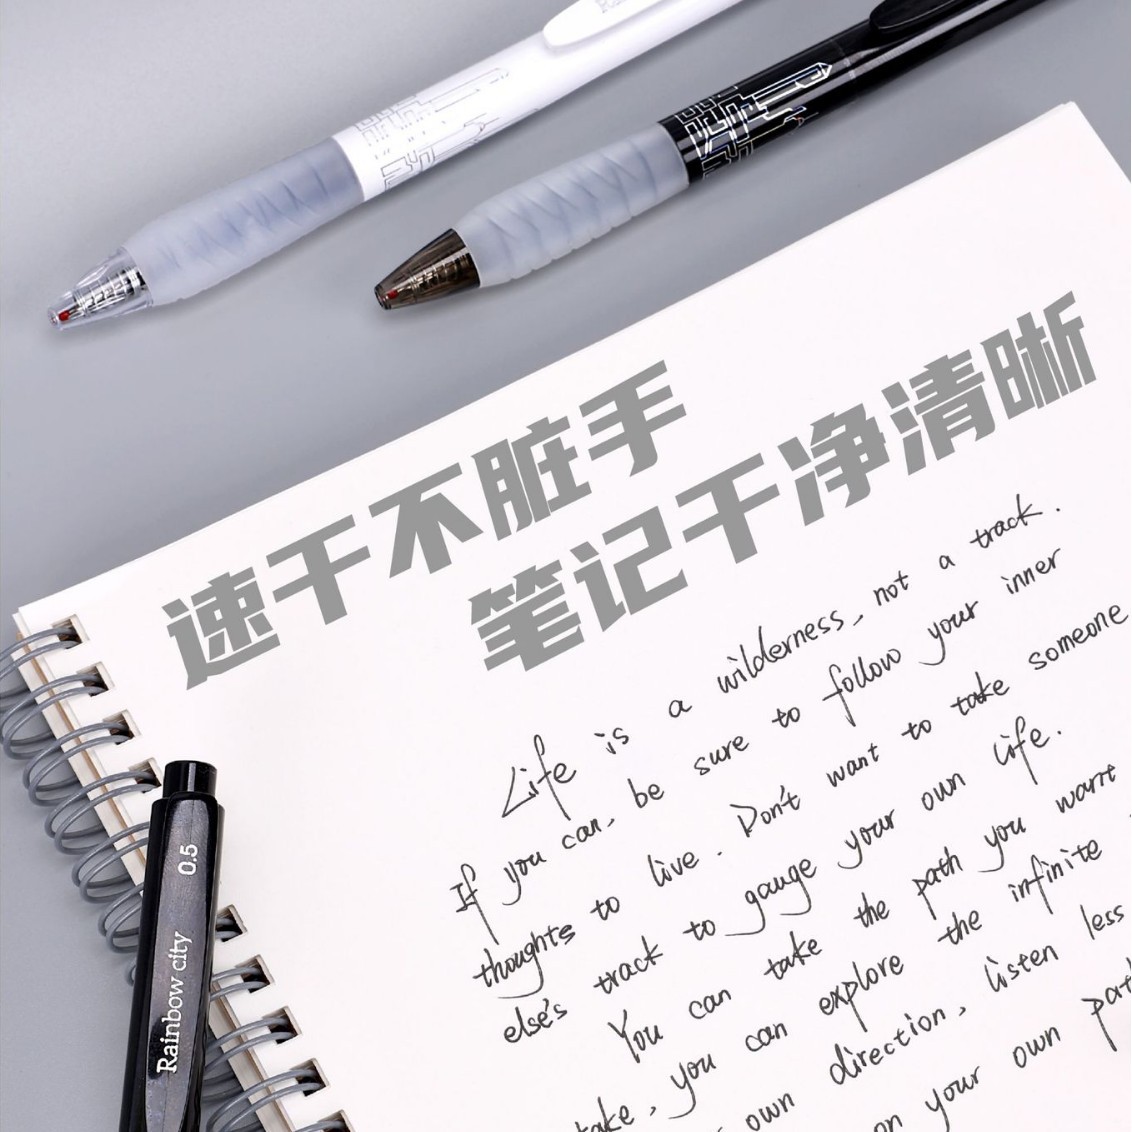 速干不脏手
笔记干净清晰
Life is a wilderness, not a track.
If you can, be sure to follow your inner
thoughts to live. Don't want to take someone
else's track to gauge your own life.
You can take the path you want
take, you can explore the infinite
own direction, listen less
on your own pat
0.5
Rainbow city